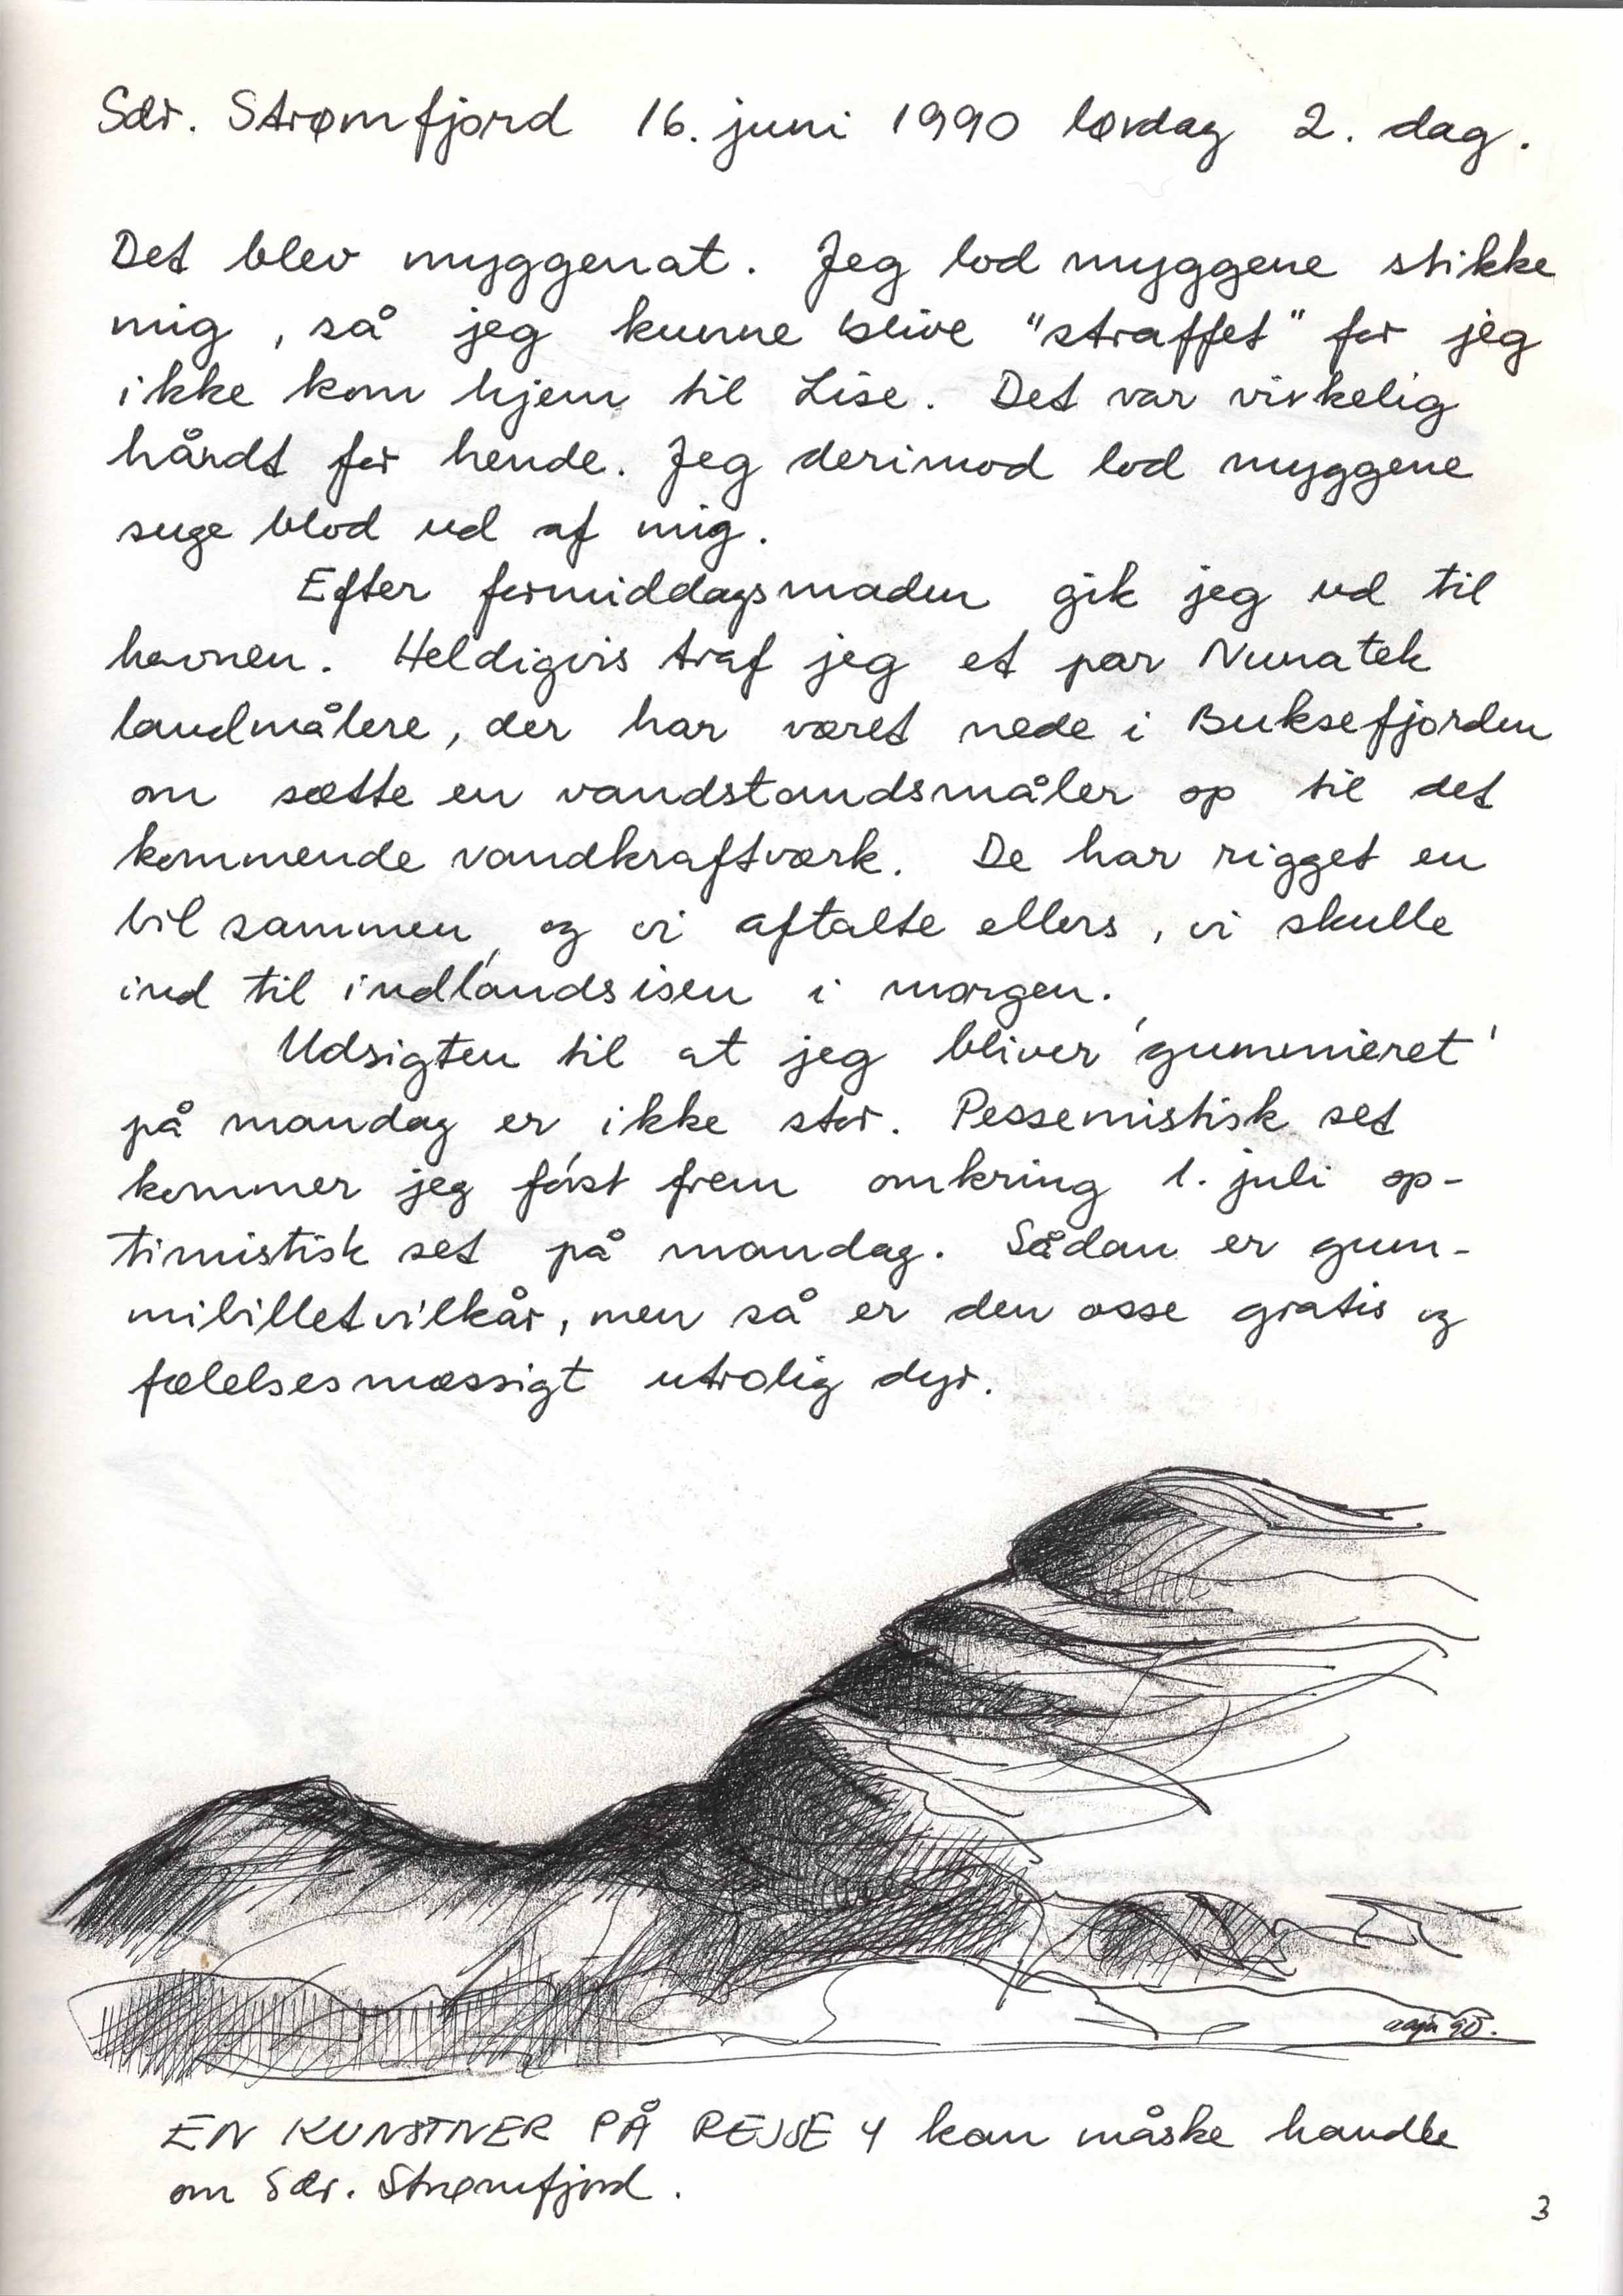 Sdr. Strømfjord 16. juni 1990 lørdag 2. dag.
Det blev myggenat. Jeg lod myggene stikke
mig, så jeg kunne blive "straffet" for jeg
ikke kom hjem til Lise. Det var virkelig
hårdt for hende. Jeg derimod lod myggene
suge blod ud af mig.
Efter formiddagsmaden gik jeg ud til
havnen. Heldigvis traf jeg et par Nunatek
landmålere, der har været nede i Buksefjorden
om sætte en vandstandsmåler op til det
kommende vandkraftværk. De har rigget en
bil sammen, og vi aftalte ellers, vi skulle
ind til indlandsisen i morgen.
Udsigten til at jeg bliver 'gummieret'
på mandag er ikke stor. Pessemistisk set
kommer jeg først frem omkring 1. juli op-
timistisk set på mandag. Sådan er gum-
mibilletvilkår, men så er den osse gratis og
følelsesmæssigt utrolig dyr.
90.
EN KUNSTNER PÅ REJSE 4 kan måske handle
om Sdr. Strømfjord.
3